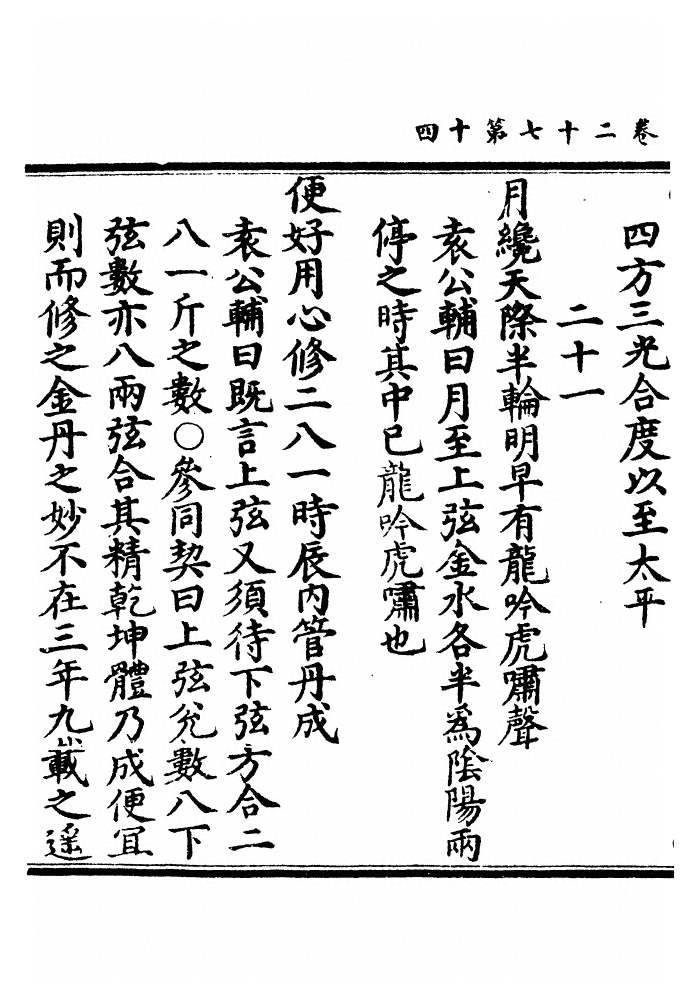 卷二十七第十四
四方三光合度以至太平
二十一
月纔天際半輪明早有龍吟虎嘯聲
袁公輔曰月至上弦金水各半爲陰陽兩
停之時其中已龍吟虎嘯也
便好用心修二八一時辰內管丹成
袁公輔曰既言上弦又須待下弦方合二
八一斤之數○參同契曰上弦兌數八下
弦數亦八兩弦合其精乾坤體乃成便宜
則而修之金丹之妙不在三年九載之遥